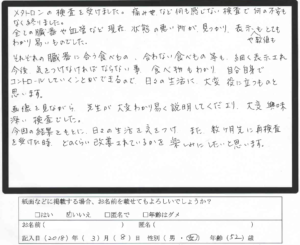 メタトロンの検査を受けました。痛みや など何も感じない検査で 何の不安も
なく終りました。
全ての臓器や血管など現在 状態の悪い所が見つかり、表示もとても
わかり易いものでした。
それぞれの臓器に合う食べもの、合わない食べもの等も 細く表示され
今後 気をつけなければならない事、食べ物もわかり 自分自身で
コントロールしていくことができるので 日々の生活に、大変 役に立つものと
思います。
画像を見ながら 先生が大変わかり易く説明してくださり、大変 興味
深い 検査でした。
今回の結果をもとに、日々の生活を気をつけ また 数ヶ月先に再検査
を受けた時 どのくらい改善されているかを 楽しみにしたいと思います。
紙面などに掲載する場合、お名前を載せてもよろしいでしょうか？
□はい ☑いいえ □匿名で □年齢はダメ
お名前( ) 匿名( )
記入日(2018)年(3)月(8)日 性別(男・女) 年齢(52)歳